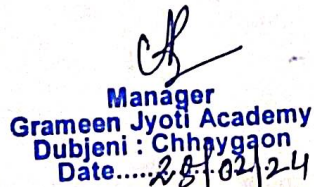 Manager
Grameen Jyoti Academy
Dubjeni : Chhaygaon
Date.....28/02/24